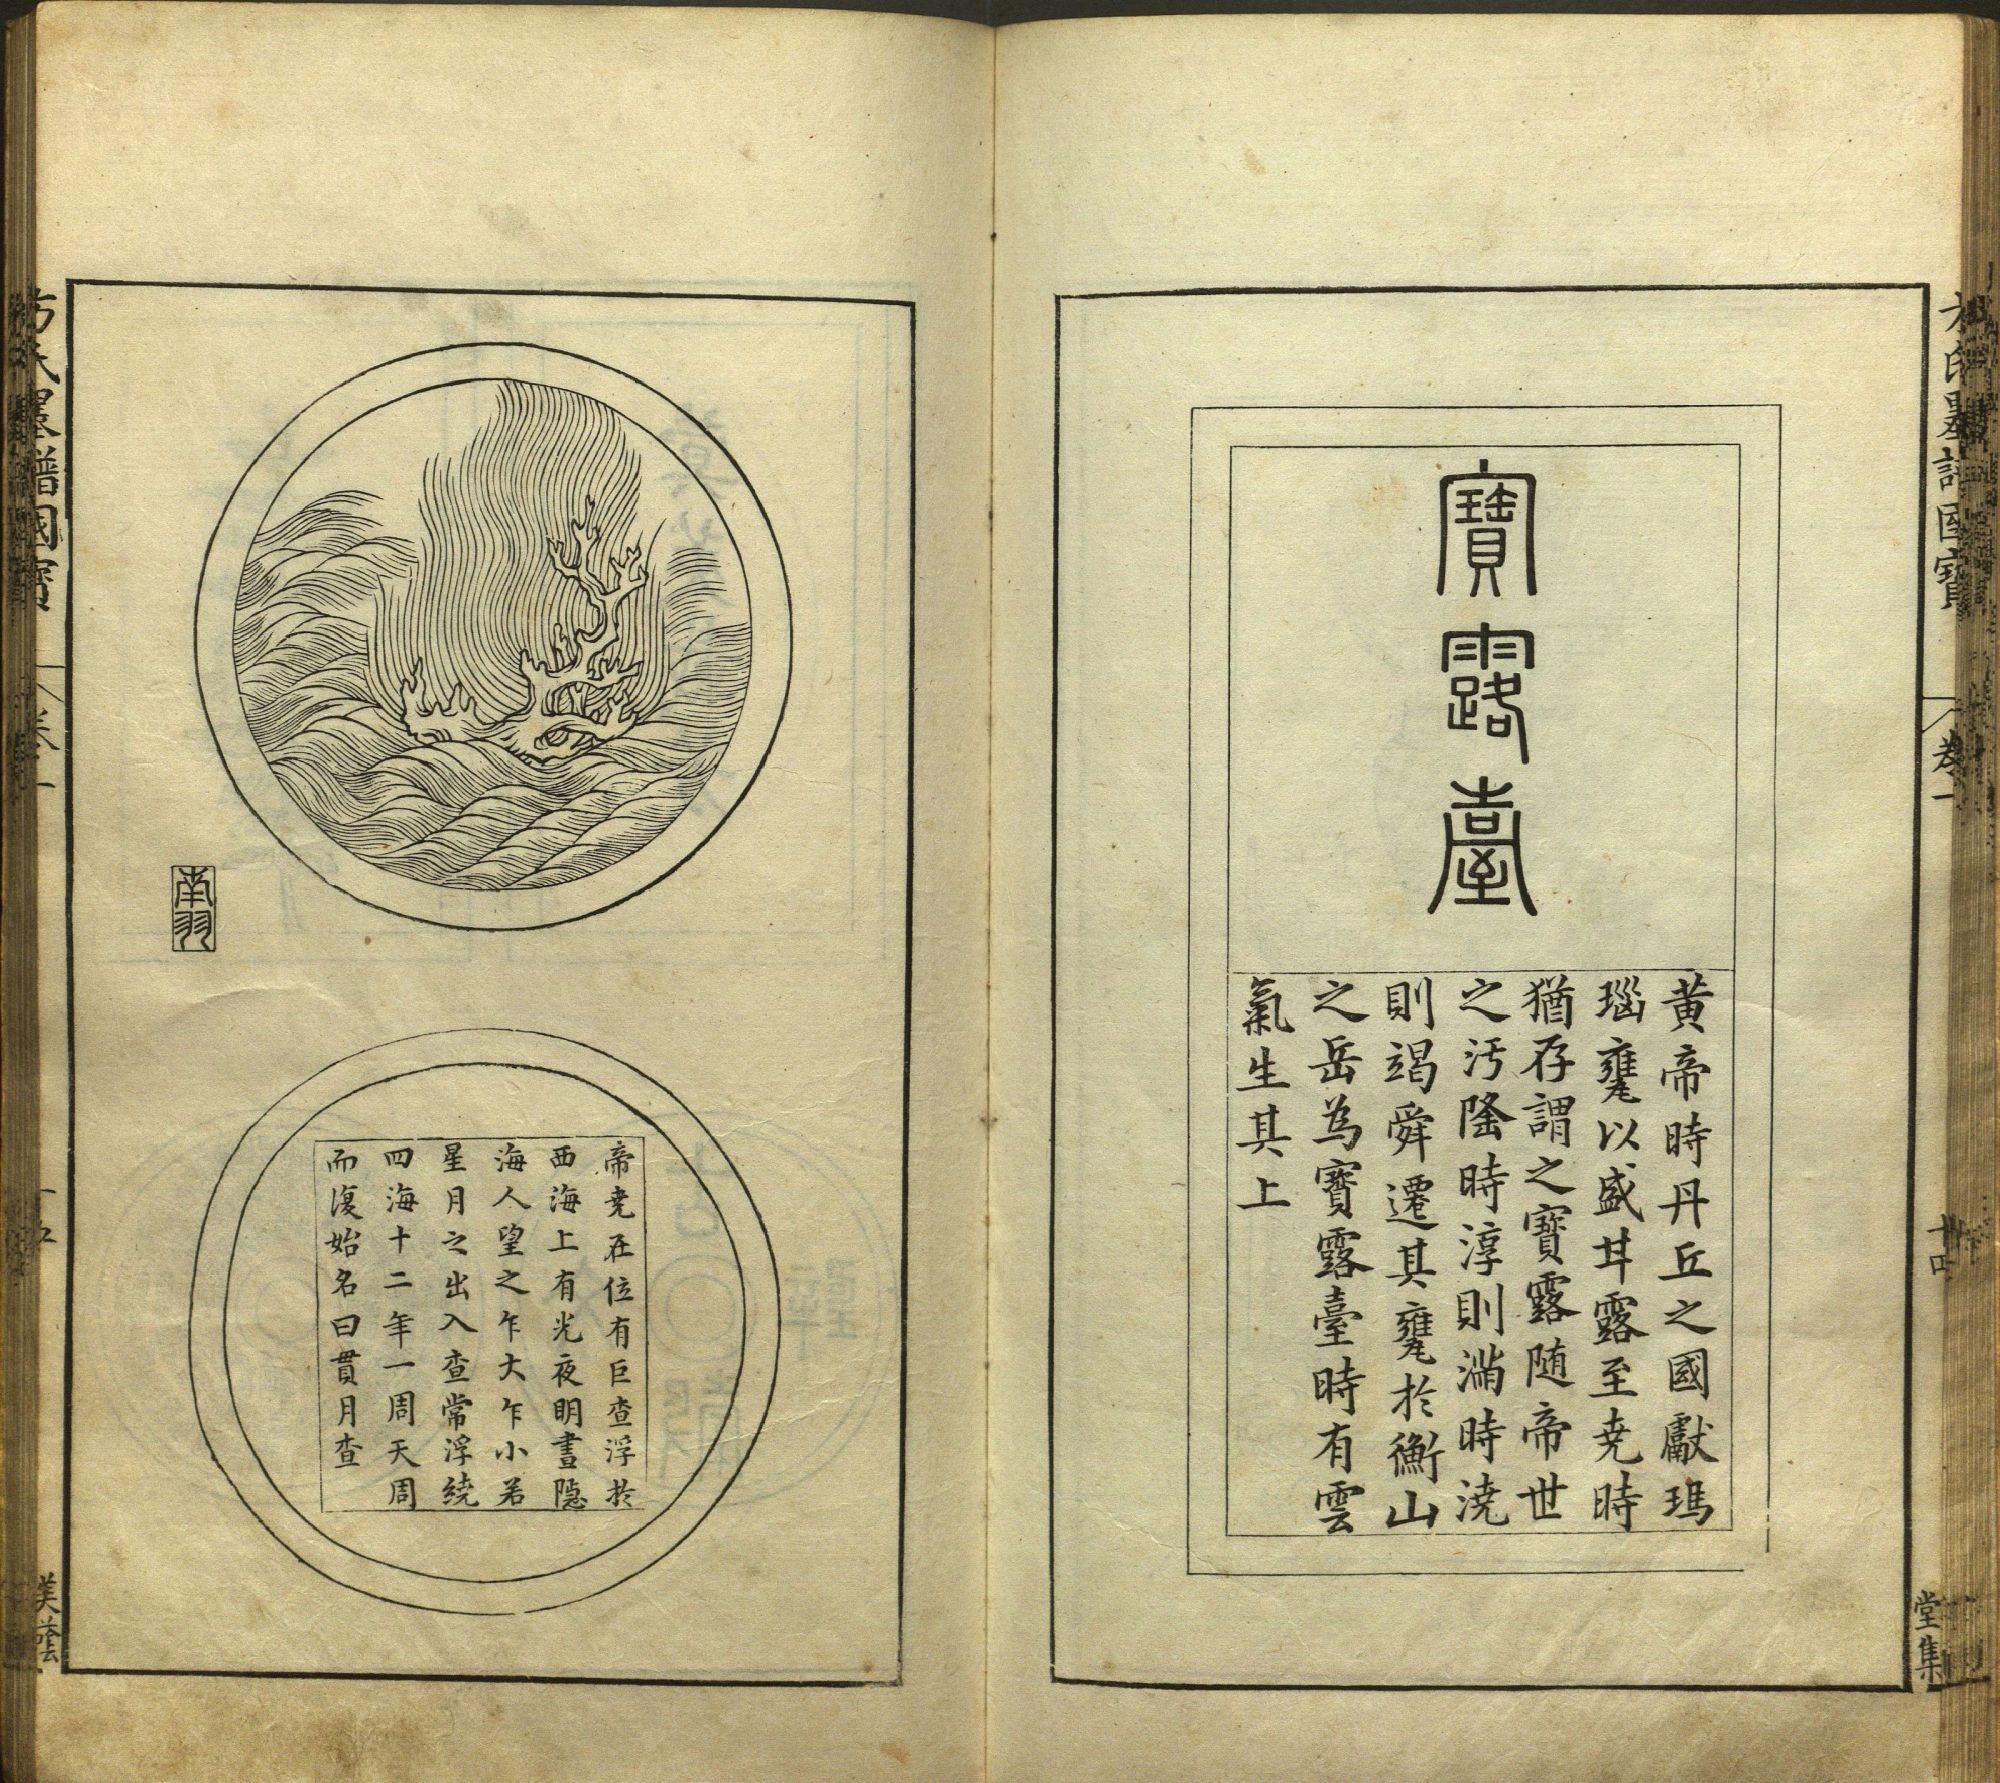 寶露臺
黄帝時丹丘之國獻瑪
瑙甕以盛甘露至尭時
猶存謂之寶露随帝世
之汚隆時淳則滿時澆
則竭舜遷其甕於衡山
之岳為寶露臺時有雲
氣生其上
方氏墨譜國寶
卷一
十四
堂集
南羽
帝尭在位有巨查浮於
西海上有光夜明晝隠
海人望之乍大乍小若
星月之出入查常浮繞
四海十二年一周天周
而復始名曰貫月查
方氏墨譜國寶
卷一
十五
美蔭